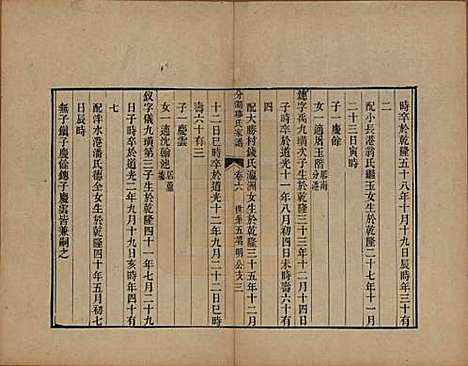 時卒於乾隆五十八年十月十九日辰時年三十有
二
配小長港翁氏繼玉女生於乾隆二十七年十一月
二十三日寅時
子一慶餘
女一適盾玉階
鏈字禹九璜次子生於乾隆三十三年二月十四日
子時卒於道光十一年八月初四日未時壽六十有
四
配大勝村錢氏瀛洲女生於乾隆三十五年十二月
分湖柳氏家譜 卷六 世系五 明公支三
十二日巳時卒於道光十二年二月二十二日巳時
壽六十有三
子一慶雲
女一適沈翰
釵字儀九璜第三子生於乾隆四十一年七月二十九
日子時卒於道光二年九月十九日亥時年四十有
七
配泮水港潘氏德全女生於乾隆四十年五月初七
日辰時
無子鏞子慶餘鏈子慶雲皆兼嗣之